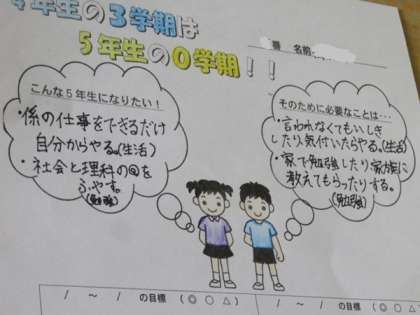 4年生の3学期は
5年生の0学期!!
番 名前
こんな5年生になりたい!
・係の仕事をできるだけ
自分からやる。(生活)
・社会と理科の◎を
ふやす。
(勉強)
そのために必要なことは…
・言われなくてもいしき
したり、気付いたらやる。(生活)
・家で勉強したり家族に
教えてもらったりする。
(勉強)
/ ～ / の目標 (◎ ○ △)
/ ～ / の目標 (◎ ○ △)